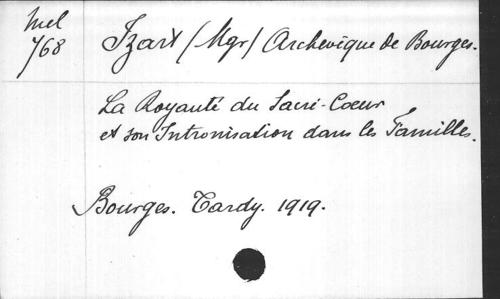 Mel
768
Izart (Mgr) Archevêque de Bourges.
La Royauté du Sacré-Coeur
et son Intronisation dans les Familles.
Bourges. Tardy. 1919.